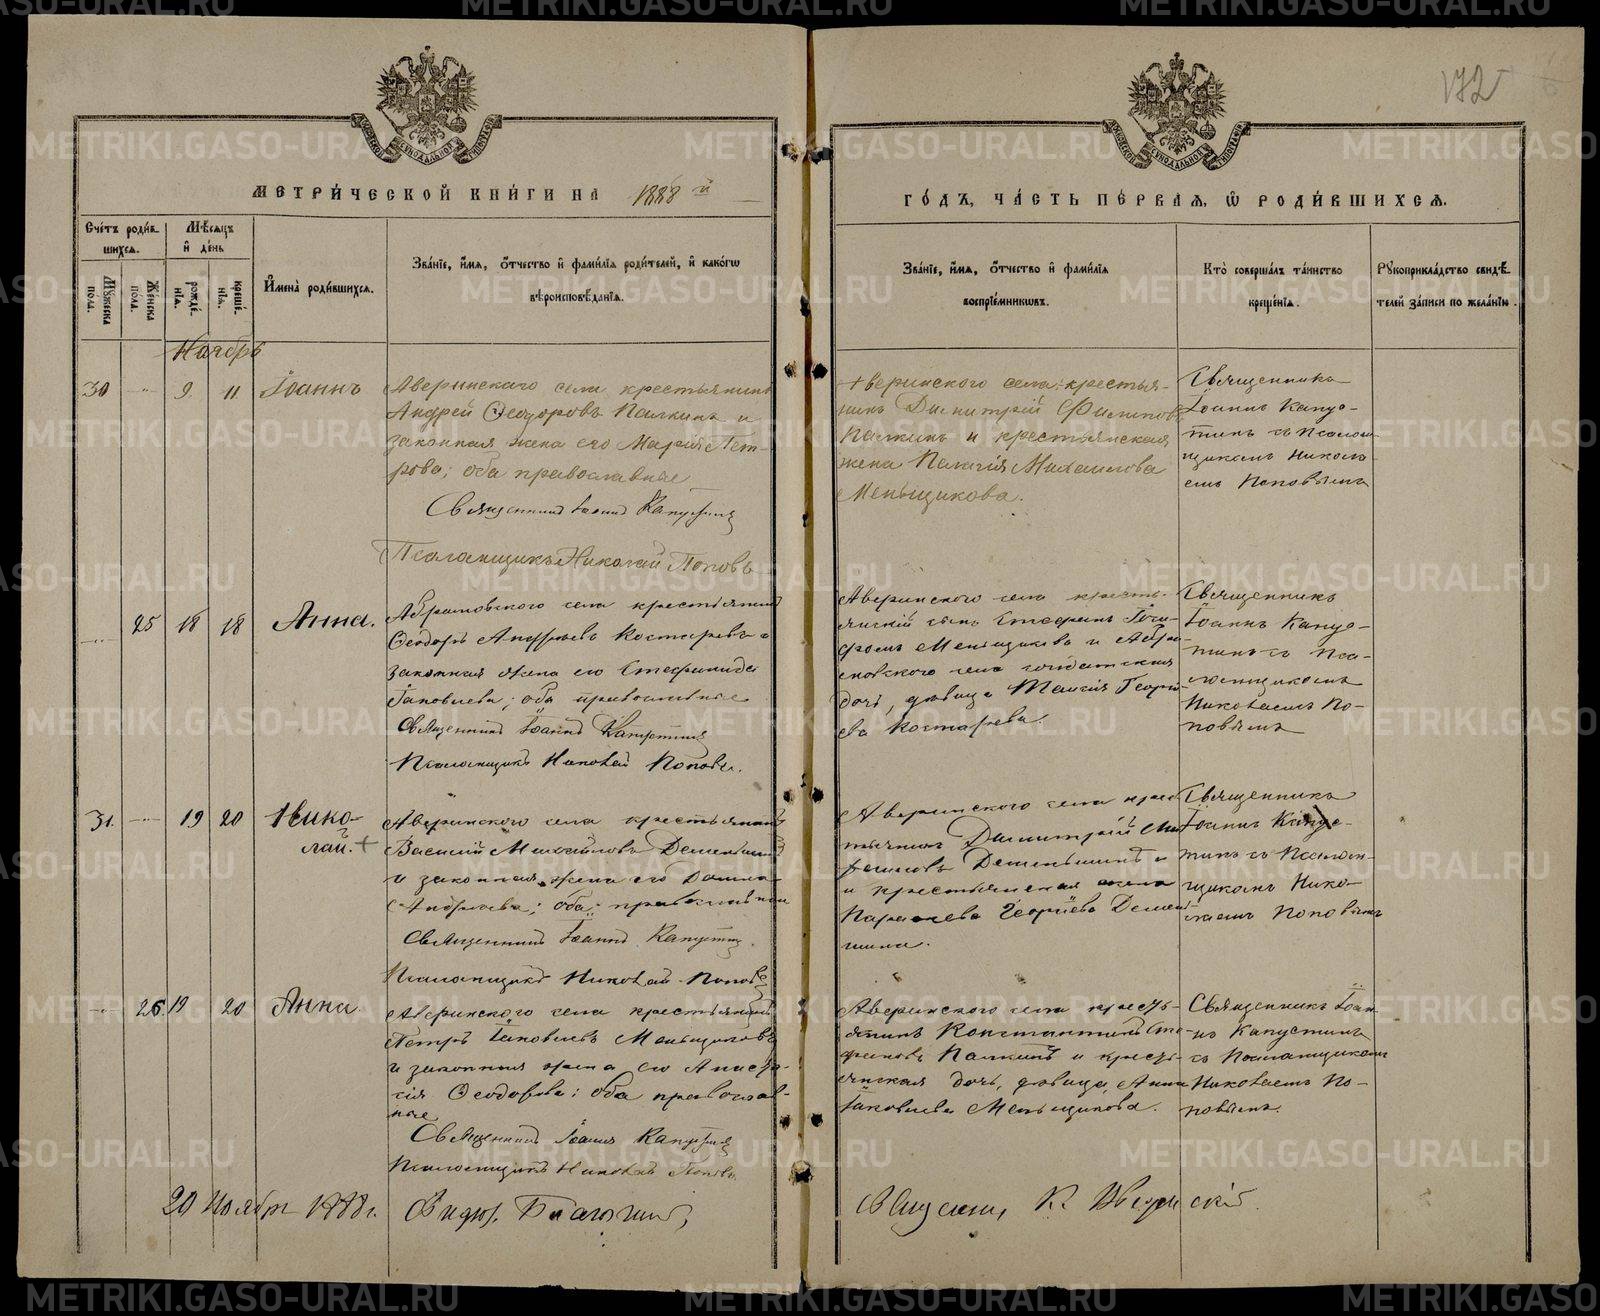 172
МЕТРИ́ЧЕСКОЙ КНИ́ГИ НА 1888й
ГО́ДЪ, ЧА́СТЬ ПЕ́РВАЯ, Ѡ РОДИ́ВШИХСЯ.
Сче́тъ роди́в-
шихся.
Мѣ́сяцъ
и҆ де́нь
Му́жеска пола.
Же́нска пола.
рожде́нїя.
креще́нїя.
И҆мена̀ роди́вшихся.
Зва́нїе, и҆́мя, ѻ҆́тчество и҆ фами́лїя роди́телей, и҆ како́гѡ
вѣроисповѣ́данїя.
Зва́нїе, и҆́мя, ѻ҆́тчество и҆ фами́лїя
воспрїе́мниковъ.
Кто̀ соверша́лъ та́инство
креще́нїя.
Рꙋкоприкла́дство свидѣ́-
телей за́писи по жела́нїю.
Ноябрь
30 9. 11. Іоаннъ
Аверинскаго села крестьянинъ
Андрей Ѳеодоровъ Палкинъ и
законная жена его Марія Пет-
рова; оба православные
Священникъ Іоаннъ Капустинъ
Псаломщикъ Николай Поповъ
Аверинского села крестья-
нинъ Димитрій Филиповъ
Палкинъ и крестьянская
жена Палагія Михаилова
Меньщикова.
Священникъ
Іоаннъ Капус-
тинъ съ Псалом-
щикомъ Никола-
емъ Поповымъ
25 18 18 Анна.
Абрамовского села крестьянинъ
Ѳеодоръ Андреевъ Костаревъ и
законная жена его Стефанида
Іаковлева; оба православные
Священникъ Іоаннъ Капустинъ
Псаломщикъ Николай Поповъ.
Аверинского села кресть-
янскій сынъ Стефанъ
Меньщиковъ и Абра-
мовского села солдатская
дочь, дѣвица Таисія Георгі-
ева Костарева.
Священникъ
Іоаннъ Капус-
тинъ съ Пса-
ломщикомъ
Николаемъ По-
повымъ
31. 19 20 Нико-
лай. +
Аверинского села крестьянинъ
Василій Михайловъ Деменьшинъ
и законная жена его Домна
Андреева; оба православные
Священникъ Іоаннъ Капустинъ.
Псаломщикъ Николай Поповъ
Аверинского села крес-
тьянинъ Димитрій
Деменьшинъ и
и крестьянская жена
Параскева Георгіева Демень-
шина.
Священникъ
Іоаннъ Капус-
тинъ съ Псалом-
щикомъ Нико-
лаемъ Поповымъ
26 19 20 Анна.
Аверинского села крестьянинъ
Петръ Іаковлевъ Меньщиковъ
и законная жена его Аниси-
я Ѳеодорова; оба православ-
ные
Священникъ Іоаннъ Капустинъ
Псаломщикъ Николай Поповъ
Аверинского села кресть-
янинъ Константинъ Сте-
фановъ Палкинъ и кресть-
янская дочь, дѣвица, Анна
Іаковлева Меньщикова.
Священникъ Іоан-
нъ Капустинъ
съ Псаломщикомъ
Николаемъ По-
повымъ.
20 Ноября 1888 г.